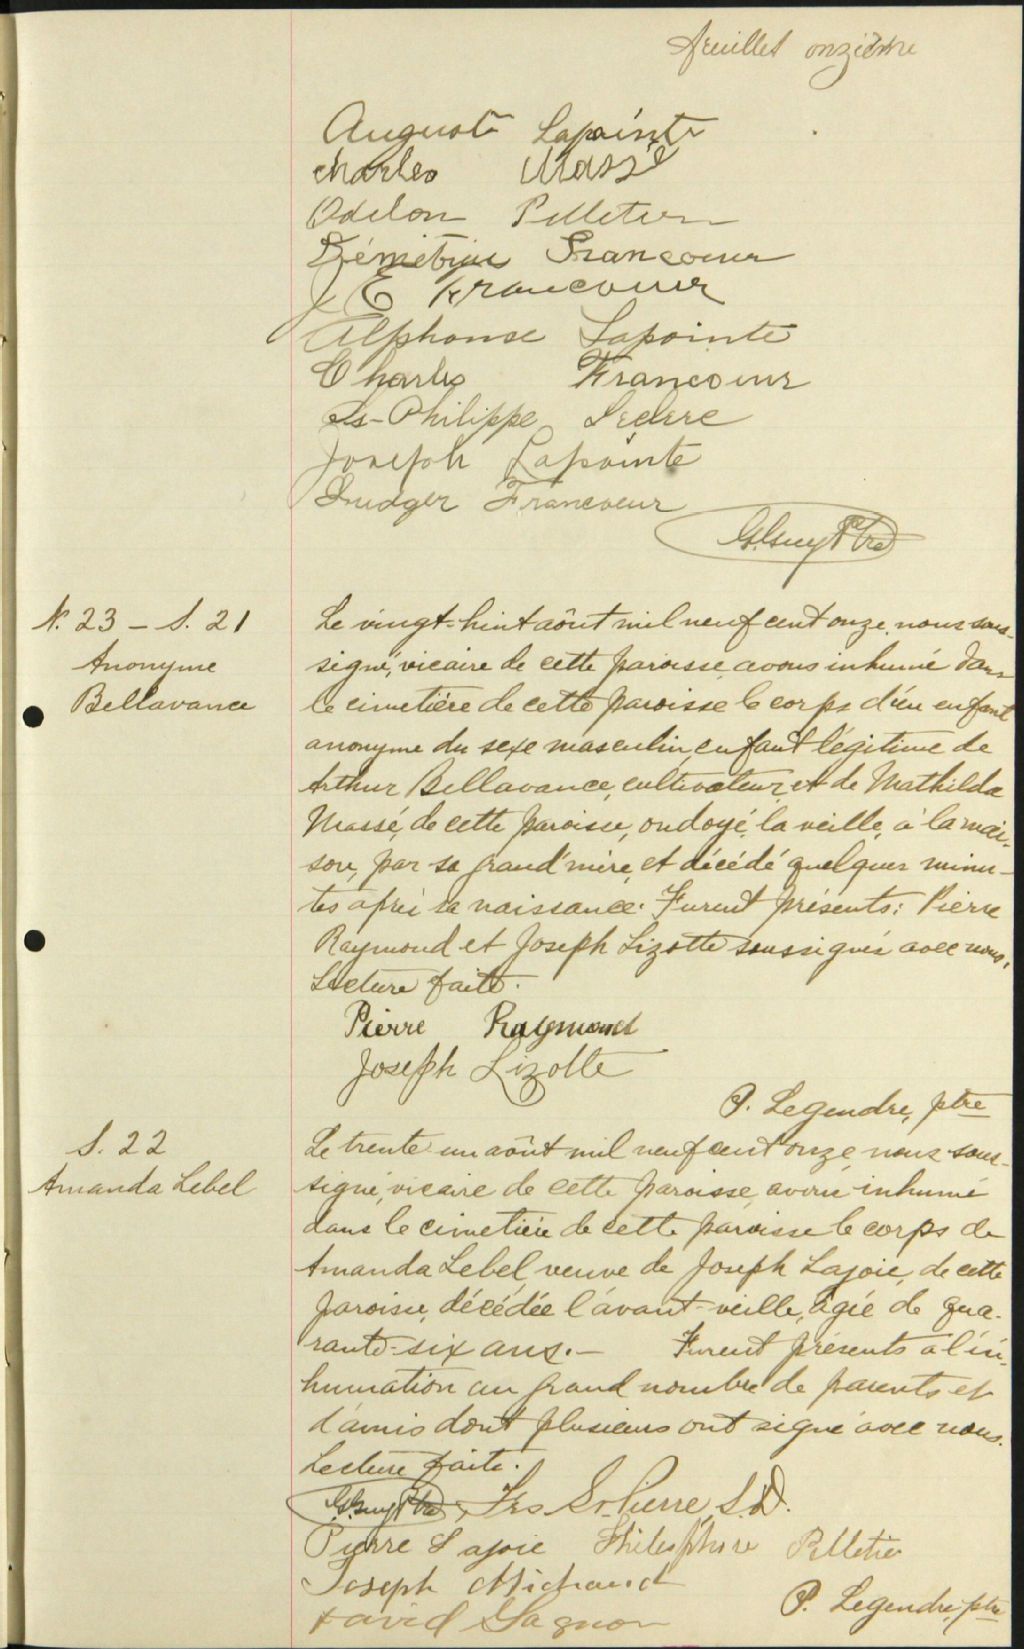 feuillet onzième
Auguste Lapointe
Charles Massé
Odilon Pelletier
Démétrius Francoeur
J E Francoeur
Alphonse Lapointe
Charles Francoeur
Ls-Philippe Leclerc
Joseph Lapointe
Ludger Francoeur
G. Guy Ptre
N. 23 – S. 21
Anonyme
Bellavance
Le vingt-huit août mil neuf cent onze, nous sous-
signé, vicaire de cette paroisse, avons inhumé dans
le cimetière de cette paroisse le corps d'un enfant
anonyme du sexe masculin, enfant légitime de
Arthur Bellavance, cultivateur, et de Mathilda
Massé, de cette paroisse, ondoyé, la veille, à la mai-
son, par sa grand'mère, et décédé quelques minu-
tes après sa naissance. Furent présents: Pierre
Raymond et Joseph Lizotte soussignés avec nous.
Lecture faite.
Pierre Raymond
Joseph Lizotte
P. Legendre, ptre
S. 22
Amanda Lebel
Le trente un août mil neuf cent onze, nous sous-
signé, vicaire de cette paroisse, avons inhumé
dans le cimetière de cette paroisse le corps de
Amanda Lebel, veuve de Joseph Lajoie, de cette
paroisse, décédée l'avant-veille, âgée de qua-
rante-six ans.– Furent présents à l'in-
humation un grand nombre de parents et
d'amis dont plusieurs ont signé avec nous.
Lecture faite.
G. Guy Ptre, Frs St-Pierre, S.D.
Pierre Lajoie Thélesphore Pelletier
Joseph Michaud
David Gagnon
P. Legendre, ptre